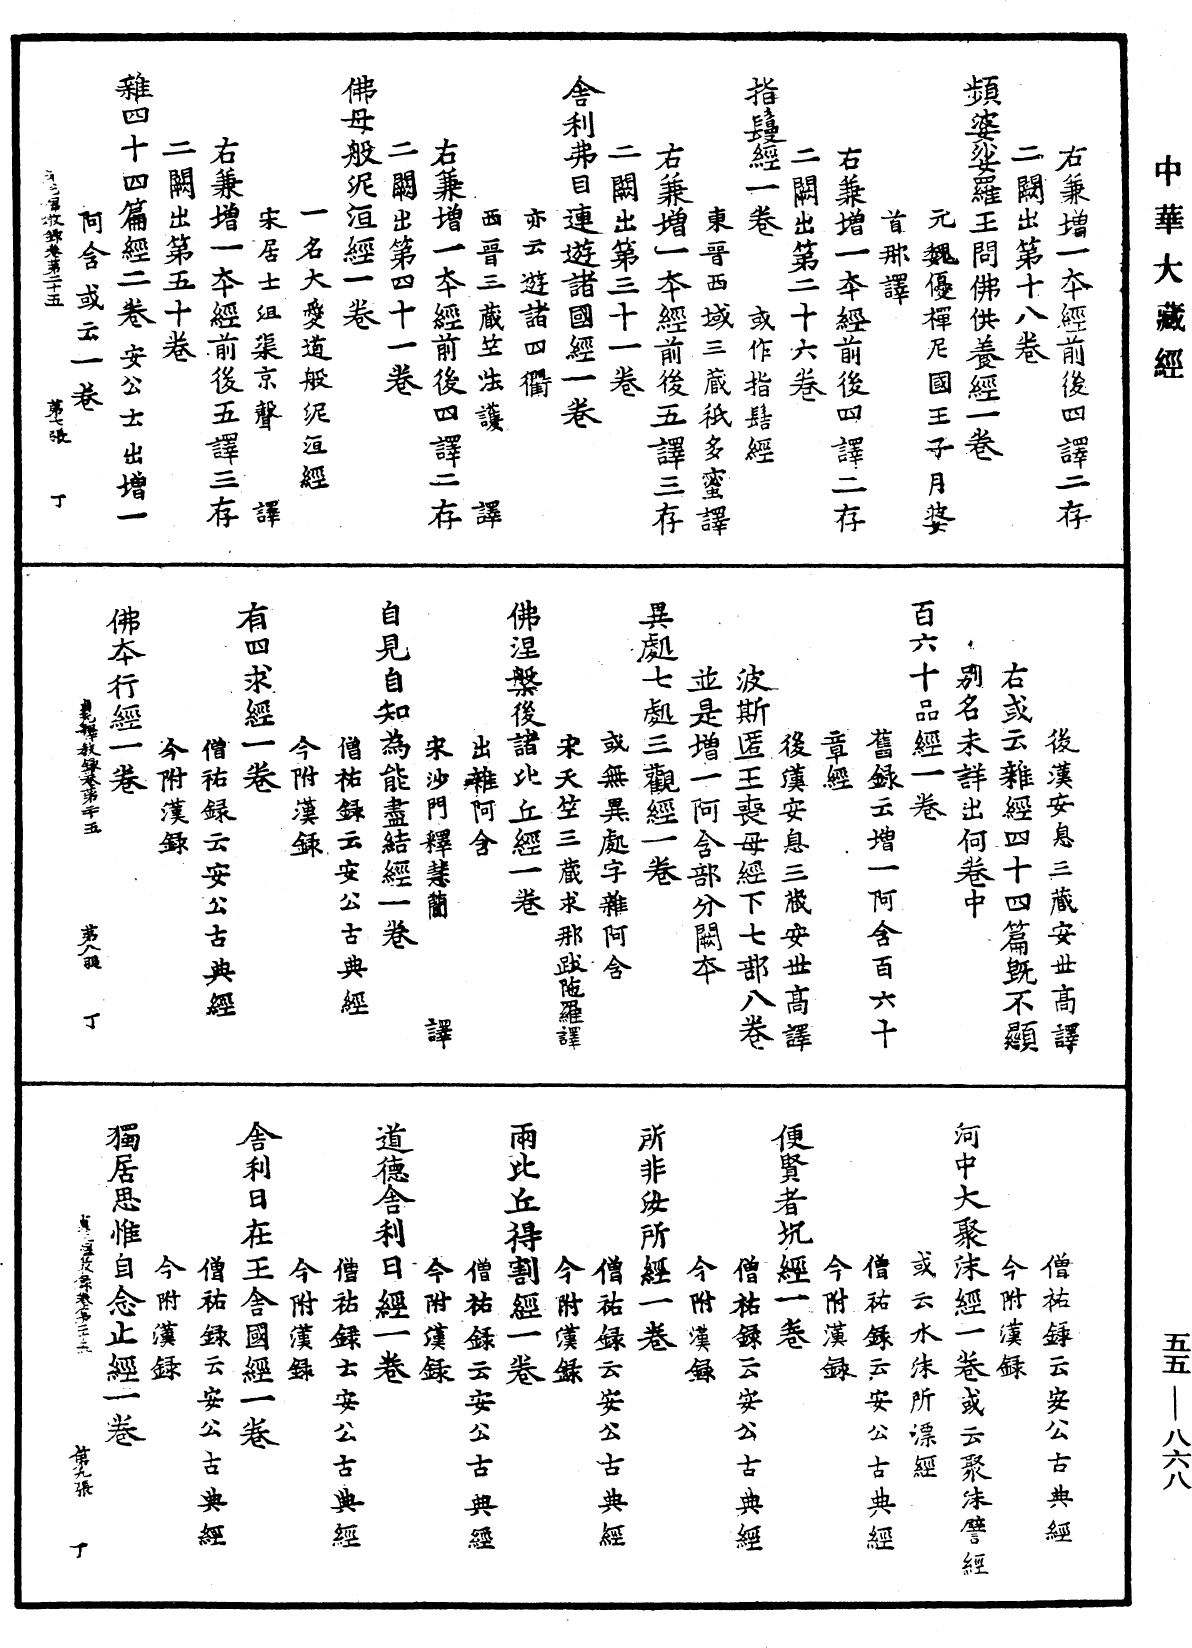 中華大藏經
右兼增一本經前後四譯二存
二闕出第十八卷
頻婆娑羅王問佛供養經一卷
元魏優禪尼國王子月婆
首那譯
右兼增一本經前後四譯二存
二闕出第二十六卷
指鬘經一卷 或作指髻經
東晉西域三藏祇多蜜譯
右兼增一本經前後五譯三存
二闕出第三十一卷
舍利弗目連遊諸國經一卷
亦云遊諸四衢
西晉三藏竺法護 譯
右兼增一本經前後四譯二存
二闕出第四十一卷
佛母般泥洹經一卷
一名大愛道般泥洹經
宋居士沮渠京聲 譯
右兼增一本經前後五譯三存
二闕出第五十卷
雜四十四篇經二卷 安公士出增一
阿含或云一卷
第七張 丁
後漢安息三藏安世高譯
右或云雜經四十四篇既不顯
別名未詳出何卷中
百六十品經一卷
舊錄云增一阿含百六十
章經
後漢安息三藏安世高譯
波斯匿王喪母經下七部八卷
並是增一阿含部分闕本
異處七處三觀經一卷
或無異處字雜阿含
宋天竺三藏求那跋陁羅譯
佛涅槃後諸比丘經一卷
出雜阿含
宋沙門釋慧簡 譯
自見自知為能盡結經一卷
僧祐錄云安公古典經
今附漢錄
有四求經一卷
僧祐錄云安公古典經
今附漢錄
佛本行經一卷
貞元釋教錄卷第二十五 第八張 丁
僧祐錄云安公古典經
今附漢錄
河中大聚沫經一卷或云聚沫譬經
或云水沫所漂經
僧祐錄云安公古典經
今附漢錄
便賢者坑經一卷
僧祐錄云安公古典經
今附漢錄
所非汝所經一卷
僧祐錄云安公古典經
今附漢錄
兩比丘得割經一卷
僧祐錄云安公古典經
今附漢錄
道德舍利日經一卷
僧祐錄士安公古典經
今附漢錄
舍利日在王舍國經一卷
僧祐錄云安公古典經
今附漢錄
獨居思惟自念止經一卷
第九張 丁
五五—八六八